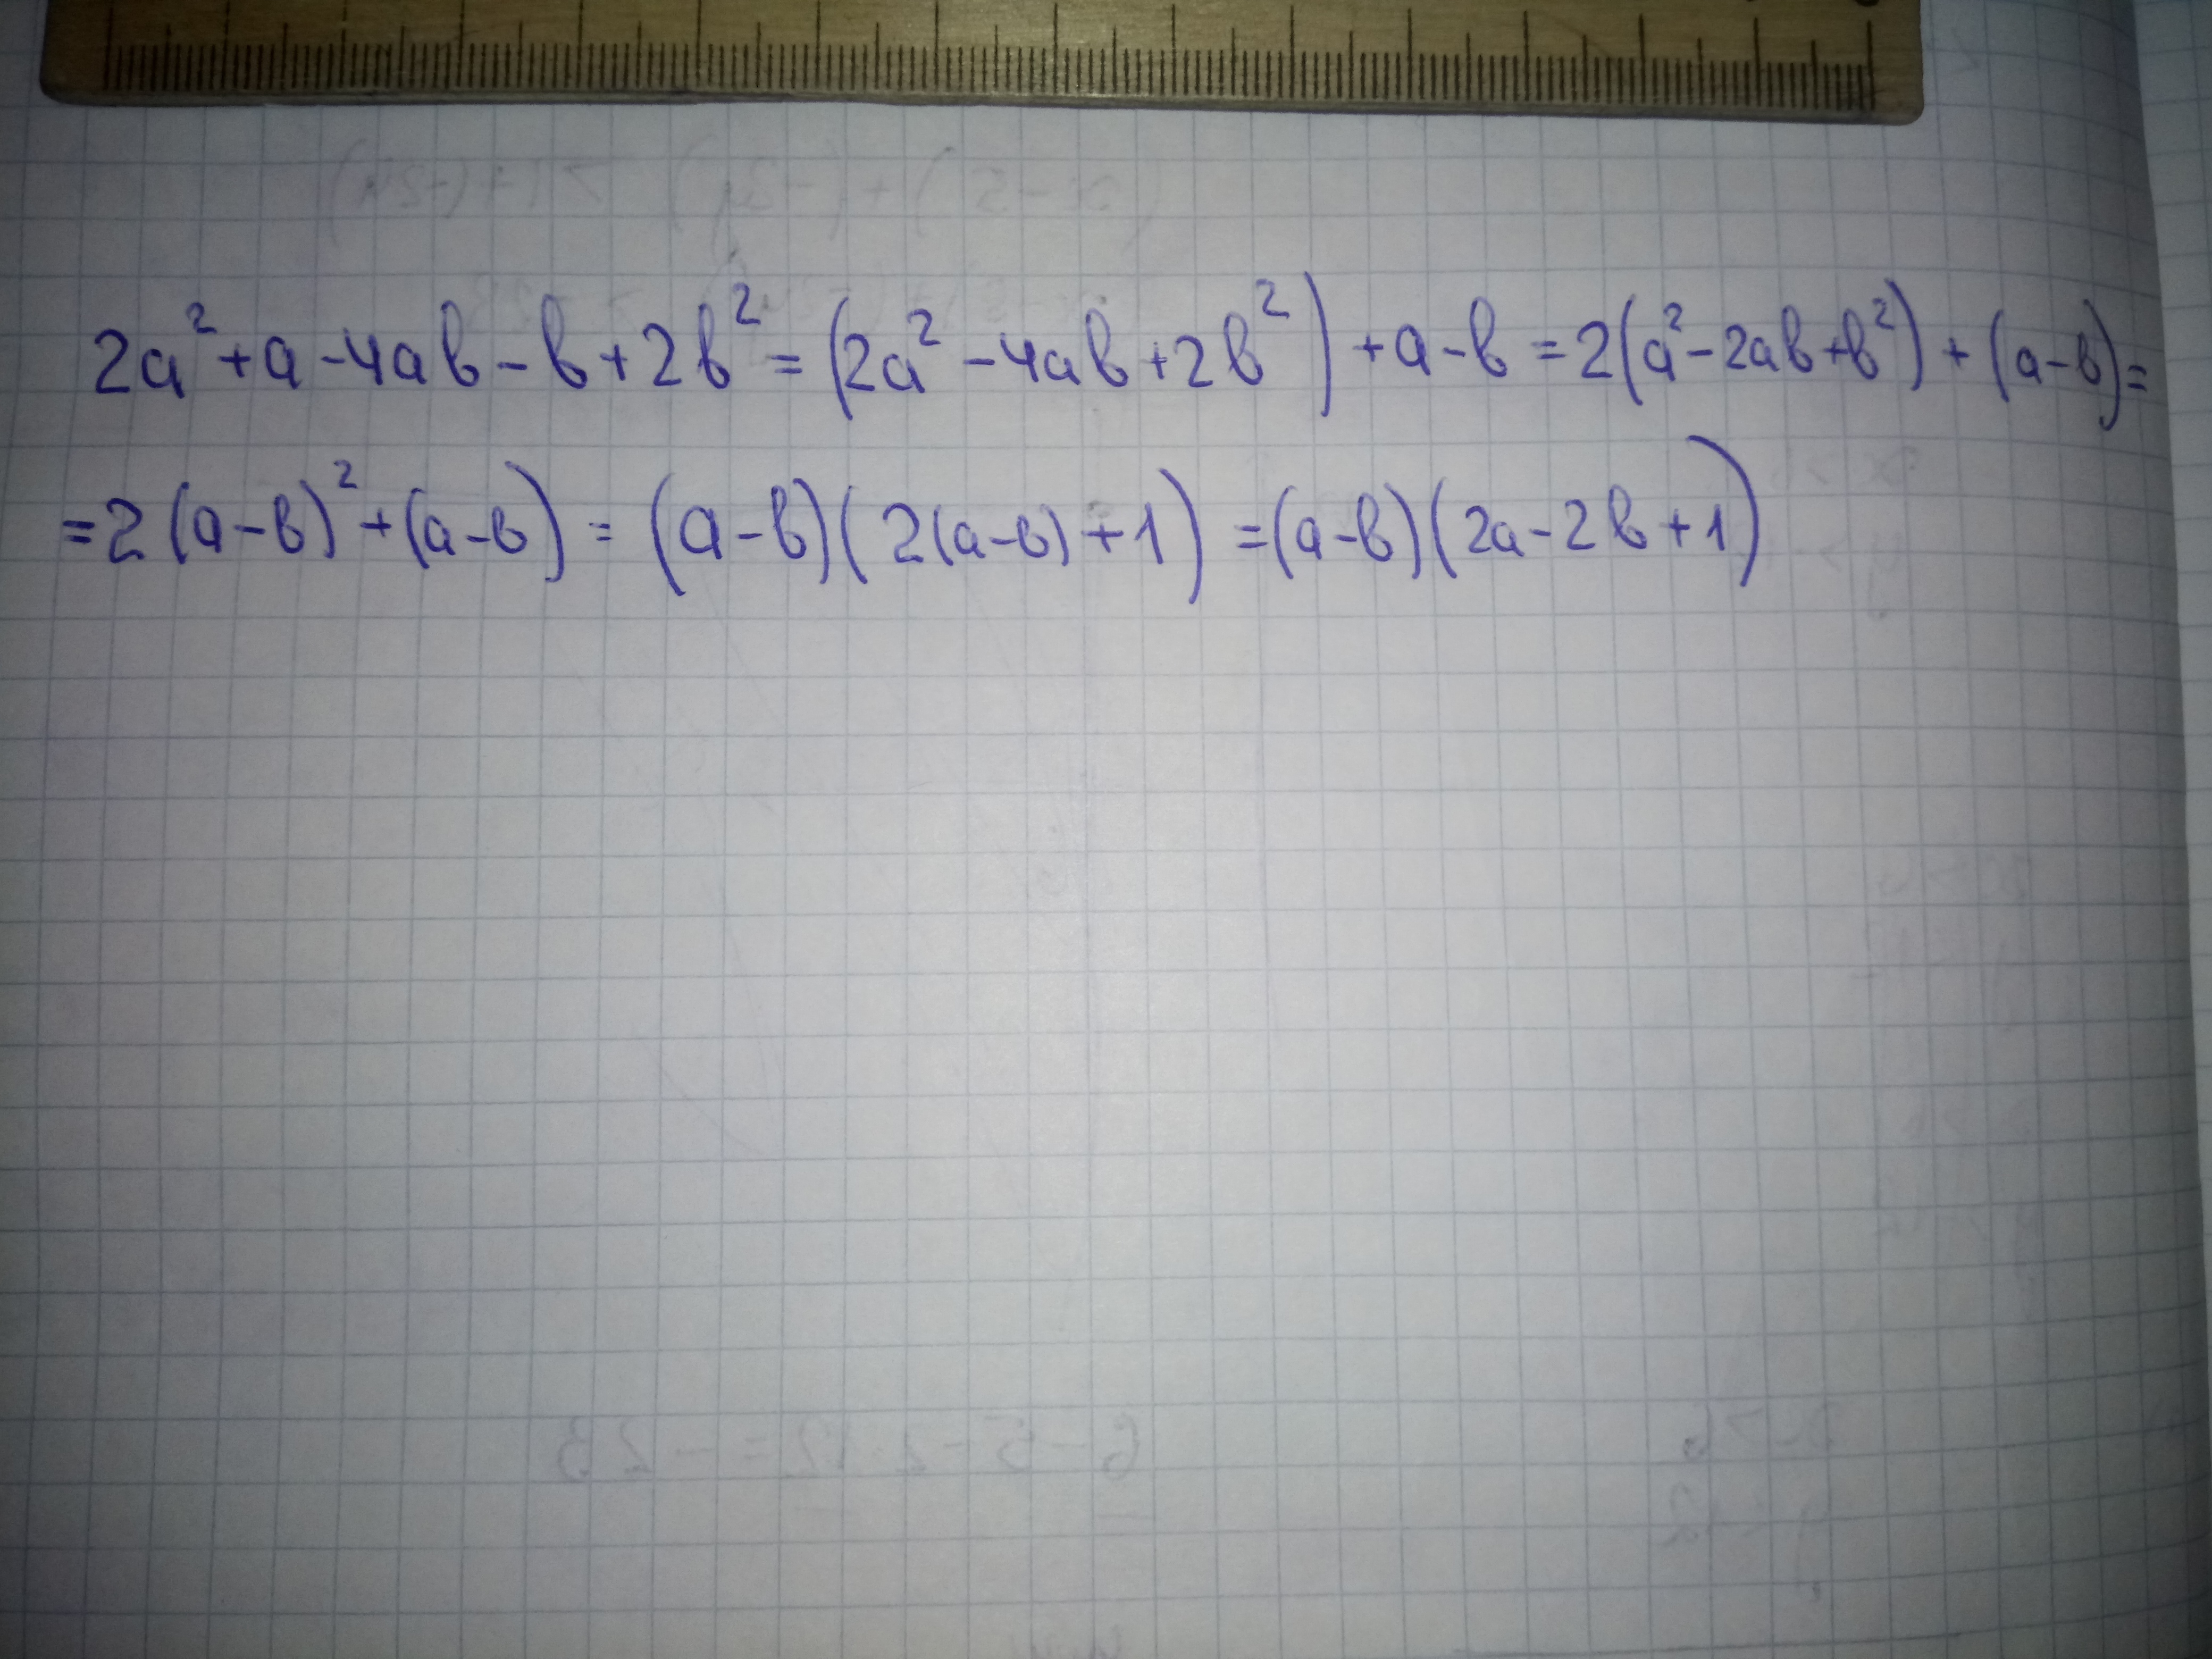 2a²+a-4ab-b+2b²=(2a²-4ab+2b²)+a-b=2(a²-2ab+b²)+(a-b)=
=2(a-b)²+(a-b)=(a-b)(2(a-b)+1)=(a-b)(2a-2b+1)